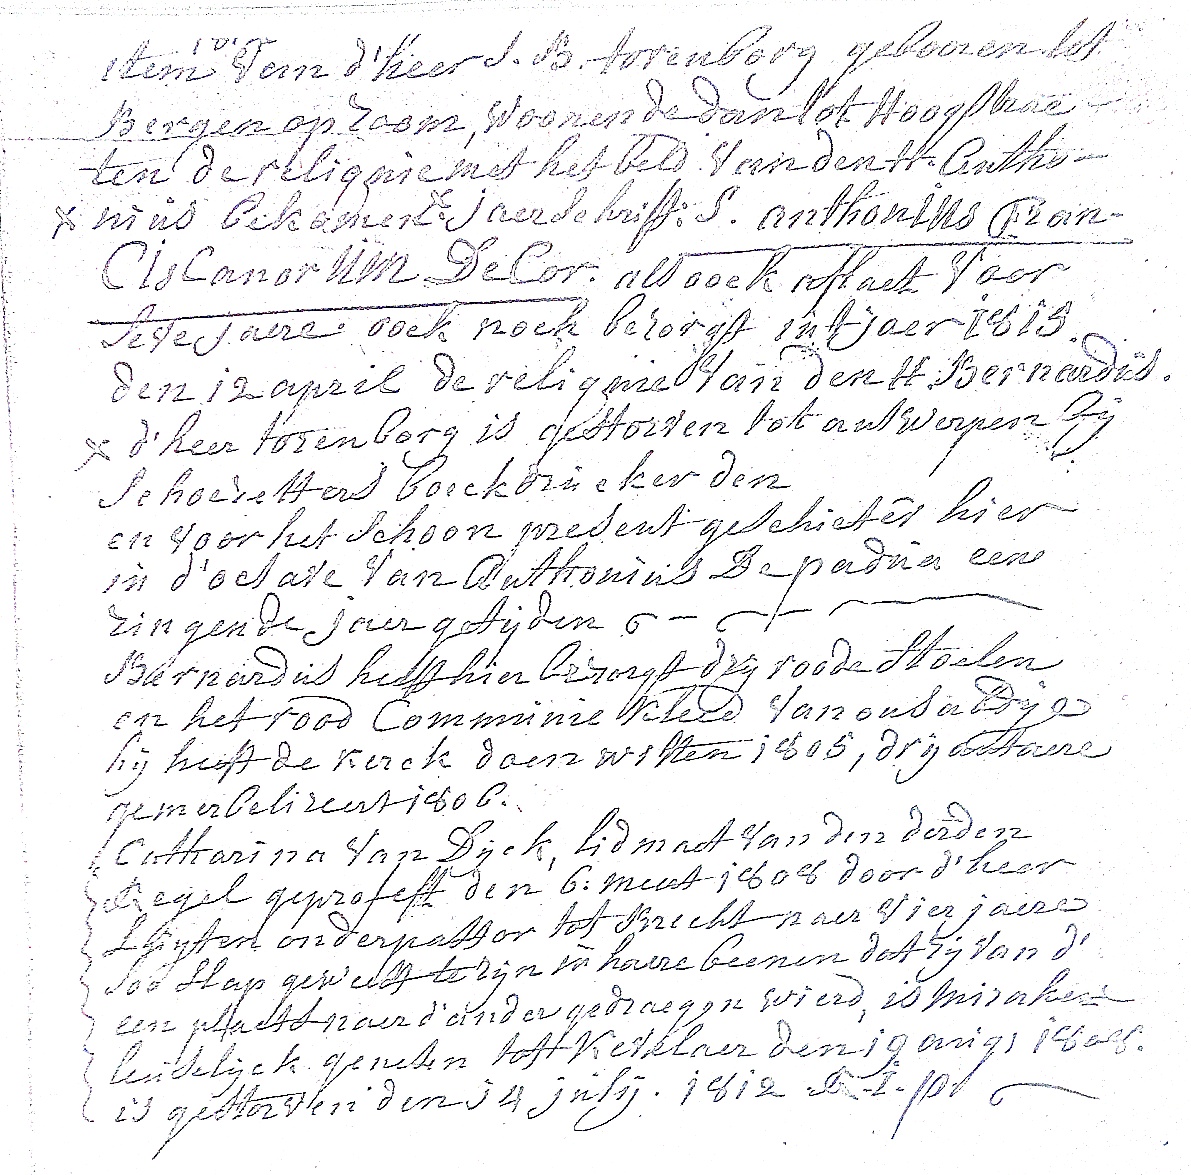 item van d'heer J. B. torenborg gebooren tot
Bergen op Zoom, Woonende dan tot Hoogstrae
ten de reliqnie met het beld van den H. Antho-
x nius bekomen x jaerschrift: S. anthonIUs Fran-
CIsCanorUM DeCor. als oock aflaet voor
seve jaere oock noch bezorgt in't jaer 1813.
den 12 april de reliqnie van den H. Bernardus.
x d'heer torenborg is gestorven tot antwerpen bij
Schoesetters boeckdrucker den
en voor het schoon present geschiet er hier
in d'octave van Anthonius De padua eene
zingende jaergetijden
Bernardus heeft hier bezorgt drij roode stoelen
en het rood Communie kleed van ous abdije
hij heeft de kerck doen witten 1805, drij autaere
gemerbelizeert 1806.
Catharina van Dyck, lidmaet van den derden
Regel geprofest den 6: meert 1808 door d'heer
Luyten onderpastor tot Brecht naer vier jaere
soo slap geweest te zijn in haere beenen dat zij van d'
een plaets naer d'ander gedraegen wierd, is miraken
leuselijck genesen tot Kevelaer den 19 augs 1808.
is gestorven den 14 julij. 1812 R. I. p.